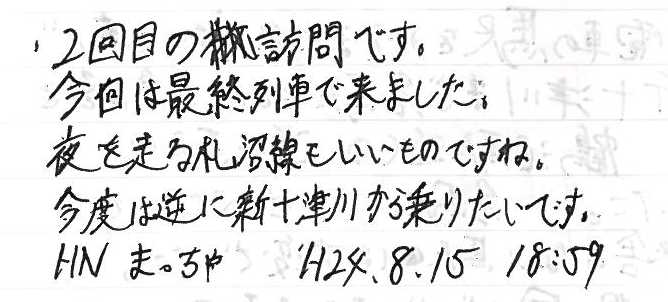 ・2回目の訪問です。
今回は最終列車で来ました。
夜を走る札沼線もいいものですね。
今度は逆に新十津川から乗りたいです。
HN まっちゃ 'H24.8.15 18:59